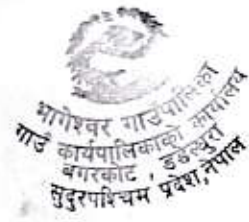 भागेश्वर गाउँपालिका
गाउँ कार्यपालिकाको कार्यालय
बगरकोट , डडेल्धुरा
सुदुरपश्चिम प्रदेश, नेपाल